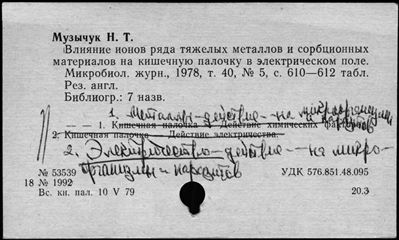 Музычук Н. Т.
Влияние ионов ряда тяжелых металлов и сорбционных
материалов на кишечную палочку в электрическом поле.
Микробиол. журн., 1978, т. 40, № 5, с. 610—612 табл.
Рез. англ.
Библиогр.: 7 назв.
1. Металлы-действие-на микроорганизмы
и паразитов
— — 1. Кишечная палочка — Действие химических факторов
2. Кишечная палочка — Действие электричества.
2. Электричество-действие-на микро-
организмы и паразитов
№ 53539 УДК 576.851.48.095
18 № 1992
Вс. кн. пал. 10 V 79 20.3